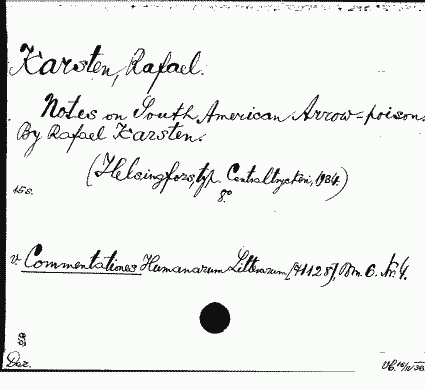 Karsten, Rafael.
Notes on South American Arrow-poison.
By Rafael Karsten.
(Helsingfors, typ. Centraltryckeri, 1934.)
8°
15s.
v. Commentationes Humanarum Litterarum [41128], Bm. 6. Nr. 4.
Dez.